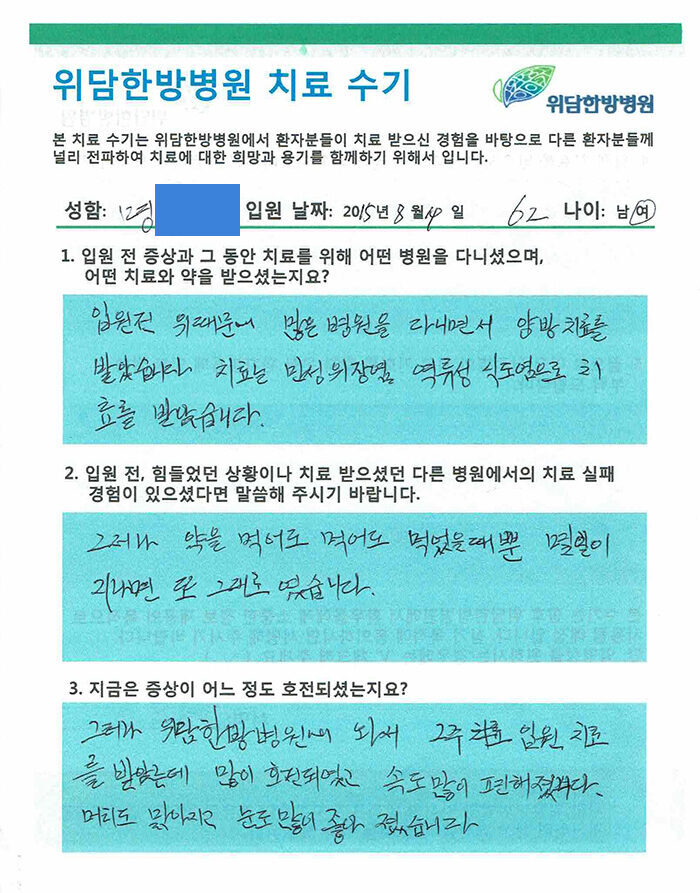 위담한방병원 치료 수기
위담한방병원
본 치료 수기는 위담한방병원에서 환자분들이 치료 받으신 경험을 바탕으로 다른 환자분들께
널리 전파하여 치료에 대한 희망과 용기를 함께하기 위해서 입니다.
성함: 명 입원 날짜: 2015년 8월 14일 62 나이: 남 여
1. 입원 전 증상과 그 동안 치료를 위해 어떤 병원을 다니셨으며,
어떤 치료와 약을 받으셨는지요?
입원전 위때문에 많은 병원을 다니면서 양방치료를
받았습니다 치료는 만성위장염, 역류성 식도염으로 치
료를 받았습니다.
2. 입원 전, 힘들었던 상황이나 치료 받으셨던 다른 병원에서의 치료 실패
경험이 있으셨다면 말씀해 주시기 바랍니다.
그러나 약을 먹어도 먹어도 먹었을때뿐 몇일이
지나면 또 그대로 였습니다.
3. 지금은 증상이 어느 정도 호전되셨는지요?
그러나 위담한방병원에 와서 2주 입원 치료
를 받았는데 많이 호전되였고 속도많이 편해졌습니다.
머리도 맑아지고 눈도많이 좋아 졌습니다